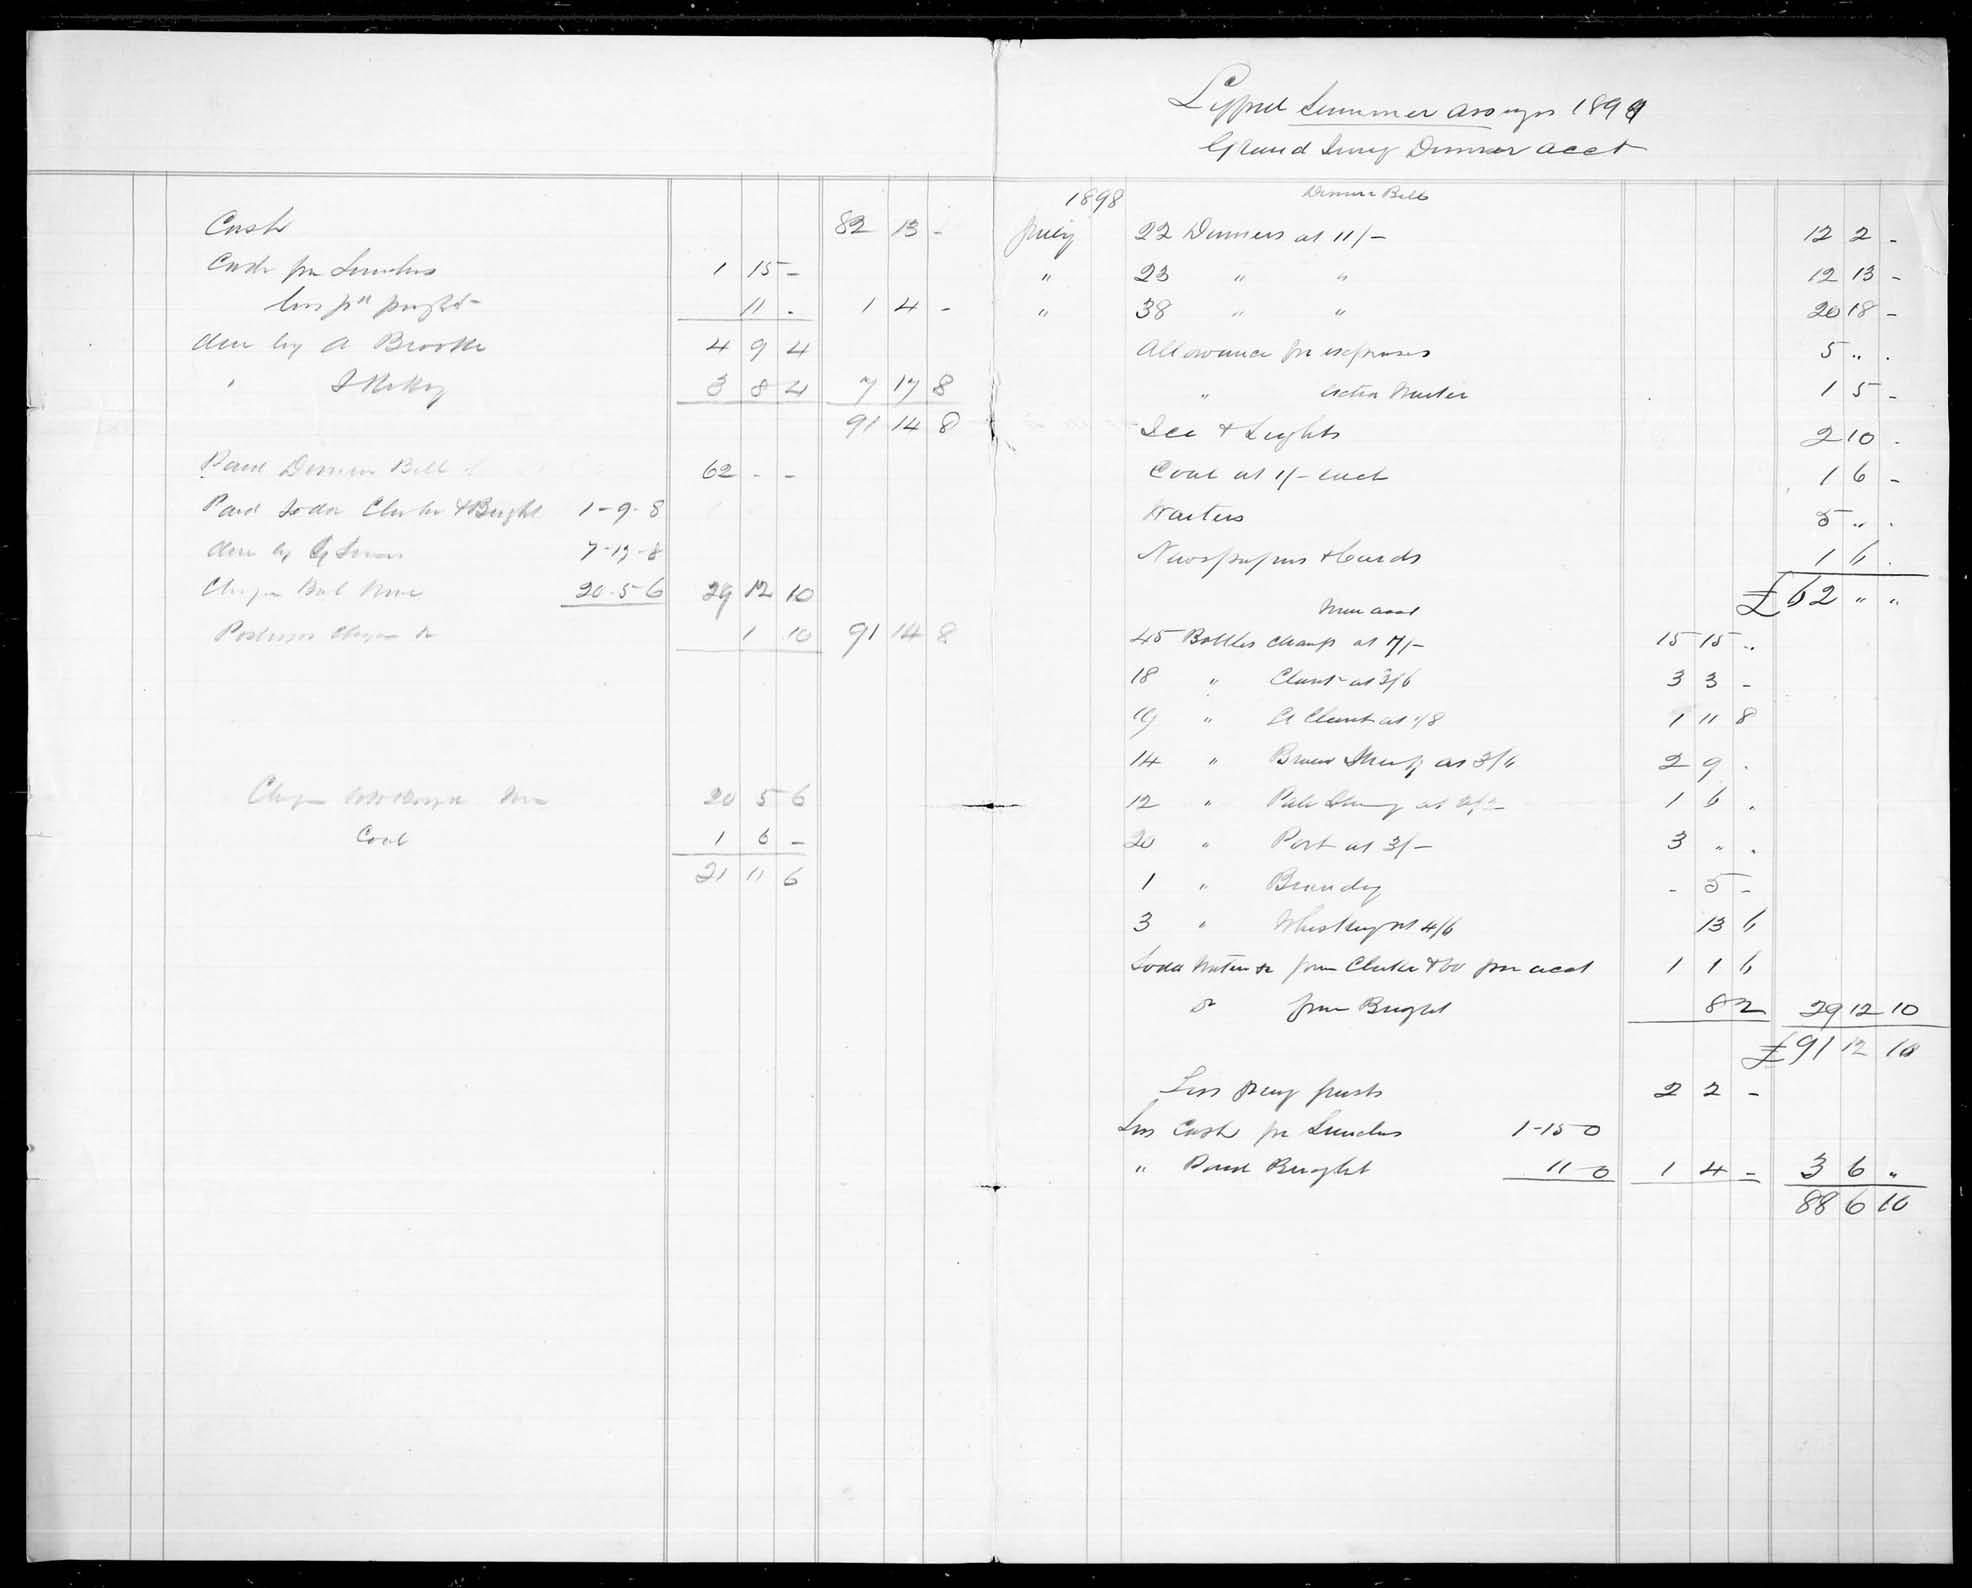 Cash 82 13 -
Cash for Lunches 1 15 -
Less pd 11 . 1 4 -
due by A Brooke 4 9 4
" 3 8 4 7 17 8
91 14 8
Paid Dinner Bill 62 - -
Paid Soda Clarke & Bright 1-9-8
due by 7-17-8
Cheque Bal Wine 20-5-6 29 12 10
Postages Cheque &c 1 10 91 14 8
Cheque Wine 20 5 6
Coal 1 6 -
21 11 6
Lifford Summer Assizes 1898
Grand Jury Dinner acct
1898 Dinner Bill
July 22 Dinners at 11/- 12 2 -
" 23 " " 12 13 -
" 38 " " 20 18 -
Allowance for expenses 5 " .
" extra Waiter 1 5 -
Ice & Lights 2 10 .
Coal at 1/- each 1 6 -
Waiters 5 " .
Newspapers & Cards 1 6 .
£62 " "
Wine acct
45 Bottles Champ at 7/- 15 15 "
18 " Claret at 3/6 3 3 -
19 " Claret at 1/8 1 11 8
14 " Brown Sherry at 3/6 2 9 .
12 " Pale Sherry at 2/2 1 6 .
20 " Port at 3/- 3 " .
1 " Brandy - 5 -
3 " Whiskey at 4/6 13 6
Soda Water &c from Clarke & Co per acct 1 1 6
Do from Bright 8 2 29 12 10
£91 12 10
Less Jury guests 2 2 -
Less Cash for Lunches 1-15-0
" Paid Bright 11-0 1 4 - 3 6 "
88 6 10